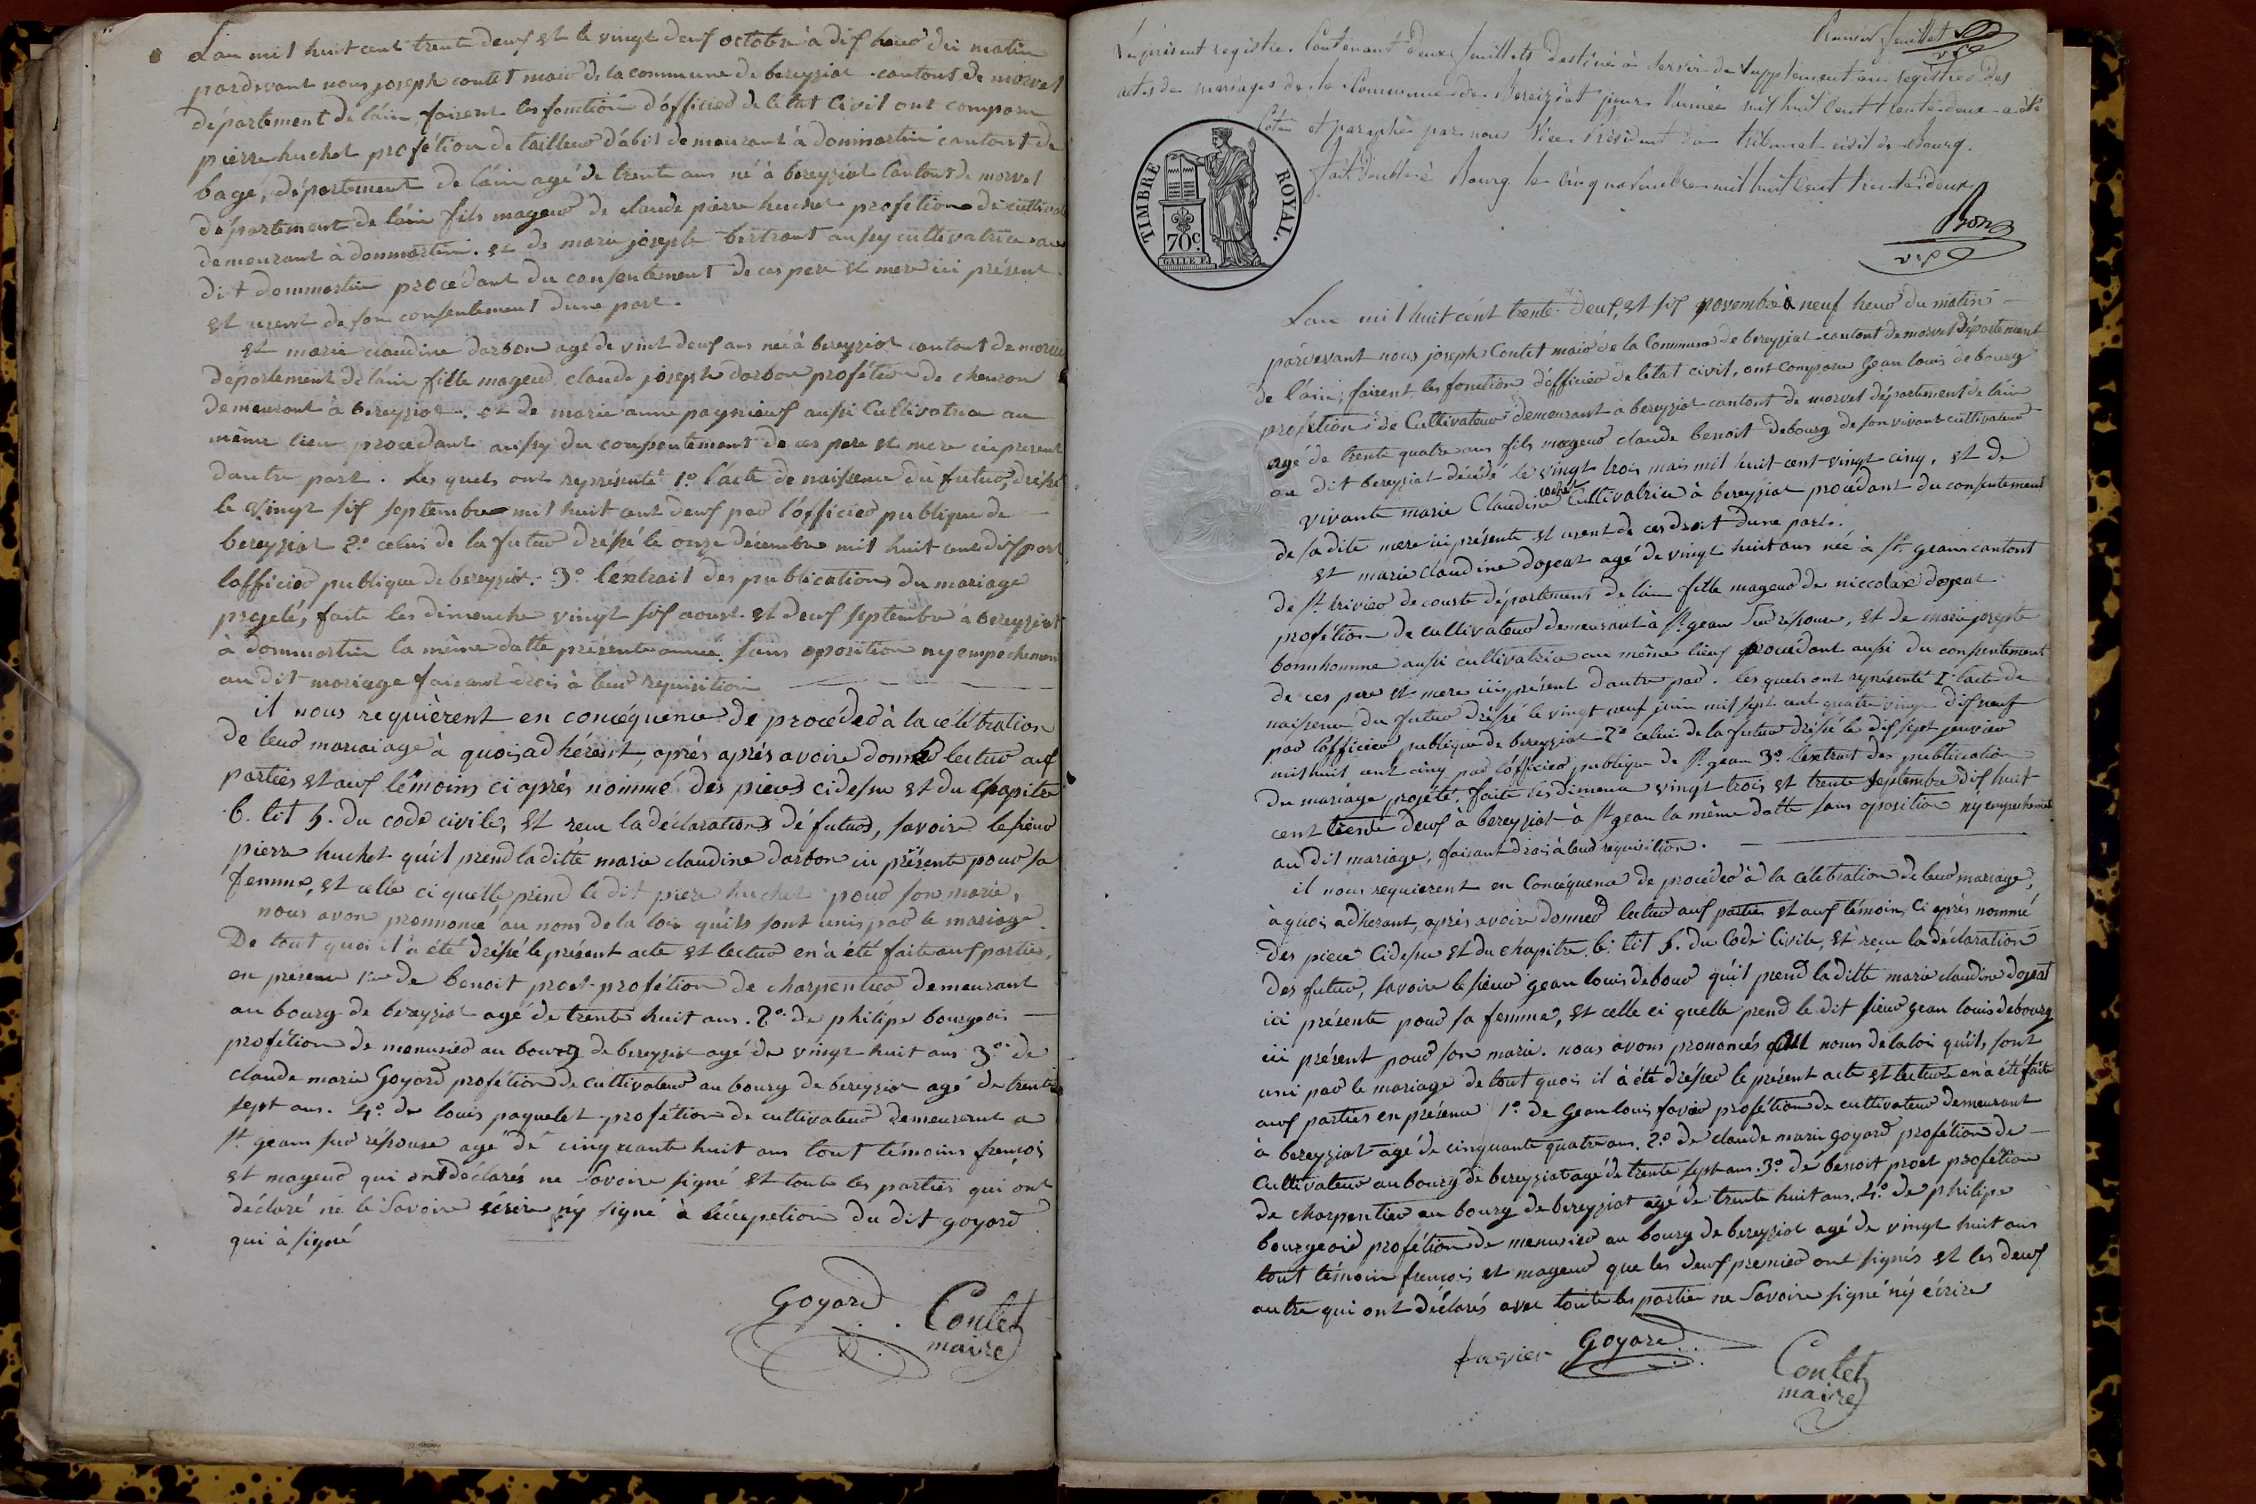 L'an mil huit cent trente deux et le vingt deux octobre à dix heur du matin
pardevant nous joseph contet maire de la commune de bereyziat cantont de morvel
département de l'ain, faisent les fonction d'officier de l'état Civil ont comparu
pierre huchet profétion de tailleur d'abit demeurant à dommartin cantont de
bagé, département de l'ain agé de trente ans né à bereyziat Cantont de morvel
département de l'ain fils mageur de claude pierre huchet profétion de cultivat
demeurant à dommartin. et de marie joseph bertront aussy cultivatrice au
dit dommartin procédant du consentement de ces pere et mere ici présent
et usent de son consentement dune part.
et marie claudine darbon agé de vint deux ans née à bereyziat cantont de morve
département de l'ain fille mageur, claude joseph darbon profétion de cheuron
demeurant à bereyziat. et de marie anne pagnieuf aussi Cultivatrice au
même lieu procédant aussy du consentement de ces pere et mere ici présent
dautre part. Les quels ont représenté 1.º l'acte de naissence du futur, dréssé
le vingt six septembre mil huit cent deux par l'officier publique de
bereyziat 2.º celui de la futur dréssé le onze décembre mil huit cent dix par
lofficier publique de bereyziat. 3.º l'extrait des publications du mariage
projeté, faite les dimenche vingt six aoust et deux septembre à bereyziat
à dommartin la même datte présente année, sans oposition ny empechement
au dit mariage faisant drois à leur requisition
il nous requièrent en concéquence de procéder à la célébration
de leur mariaiage à quois adhérent, après après avoire donné lectur aux
parties et aux témoins ci après nommé des pieces cidessu et du Chapitre
6. tit 5. du code civile, et recu la déclarations dé futurs, savoire le sieur
pierre huchet quil prend la ditte marie claudine darbon ici présente pour sa
femme, et celle ci quelle prend le dit piere huchet pour son marie,
nous avon prononcé au nom de la lois qu'ils sont unis par le mariage.
De tout quoi il à été dréssé le présent acte et lectur en à été faite aux partie,
en présence 1.er de benoit proet profétion de charpentier demeurant
au bourg de bereyziat agé de trente huit ans. 2.º de philipe bourgeois
profétion de menusier au bourg de bereyziat agé de vingt huit ans 3.º de
claude marie Goyard profétion de cultivateur au bourg de bereyziat agé de trente
sept ans. 4.º de louis paquelet profétion de cultivateur demeurent a
st geans sur résouse agé de cinquante huit ans tout témoins françois
et mageur qui ont déclarés ne Savoire signé et toute les parties qui ont
déclaré ne le Savoire écrire ny signé à l'écepetion du dit goyard
qui à signé
Goyard
Contet
maire
Premier feuillet
Le présent registre Contenant deux feuillets destiné à servir de Supplément au registre des
actes de mariages de la Commune de Bereiziat pour l'année mil huit cent trente deux a été
Coté et paraphé par nous Vice Président du tribunal civil de Bourg.
fait double à Bourg le cinq novembre mil huit cent trente deux
TIMBRE ROYAL.
70c.
GALLE F.
L'an mil huit cent trente deux, et six novembre à neuf heur du matin
pardevant nous joseph Contet maire de la Commune de bereyziat cantont de morvel département
de l'ain, faisent les fonction d'officier de l'état civil, ont comparu Gean louis debourg
profétion de Cultivateur demeurant a bereyziat cantont de morvel département de lain
agé de trente quatre ans fils mageur claude benoit debourg de son vivant cultivateur
au dit bereyziat décédé le vingt trois mais mil huit cent vingt cinq, et de
vivante marie Claudine Cultivatrice à bereyziat procédant du consentement
de sa dite mere ici présente et usent de ces droit dune part.
et marie claudine dojeat agé de vingt huit ans née à st. geans cantont
de st. trivier de courte département de l'ain fille mageur de niccolax dojeat
profétion de cultivateur demeurant à st. gean sur résouse, et de marie joseph
bonnhomme aussi cultivatrice au même lieux procédant aussi du consentement
de ces pere et mere ici présent d'autre par. les quels ont représenté 1º l'acte de
naissence du futur dréssé le vingt neuf juin mil sept cent quatre vingt dixneuf
par lofficier publique de bereyziat 2.º celui de la futur dréssé le dix sept janvier
mil huit cent cinq par l'officier publique de st. gean 3.º l'extrait des publication
du mariage projété, faite les dimence vingt trois et trente septembre dix huit
cent trente deux à bereyziat à st. gean la même datte sans oposition ny empechement
au dit mariage, faisant drois à leur requisition.
il nous requierent en Concéquence de procéder à la célébration de leur mariage,
à quois adherant, après avoire donner lectur aux parties et aux témoin, Ci après nommé
des piece Cidessu et du chapitre 6. tit 5. du Code Civile, et recu la déclaration
des futur, savoire le sieur gean louis debour qu'il prend la ditte marie claudine dojeat
ici présente pour sa femme, et celle ci quelle prend le dit sieur gean louis debourg
ici présent pour son marie. nous avons prononcés au nom de la loi qu'ils sont
uni par le mariage de tout quois il à été drésser le présent acte et lecture en à été faite
aux parties en présence 1.º de Gean louis favier profétion de cultivateur demeurant
à bereyziat agé de cinquante quatre ans. 2.º de claude marie goyard profétion de
Cultivateur au bourg de bereyziat agé de trente sept ans. 3.º de benoit proet profétion
de charpentier au bourg de bereyziat agé de trente huit ans. 4.º de philipe
bourgeois profétion de menusier au bourg de bereyziat agé de vingt huit ans
tout témoin françois et mageur que les deux premier ont signés et les deux
autre qui ont déclarés avec toute les partie ne Savoire signé ny écrire
favier Goyard
Contet
maire